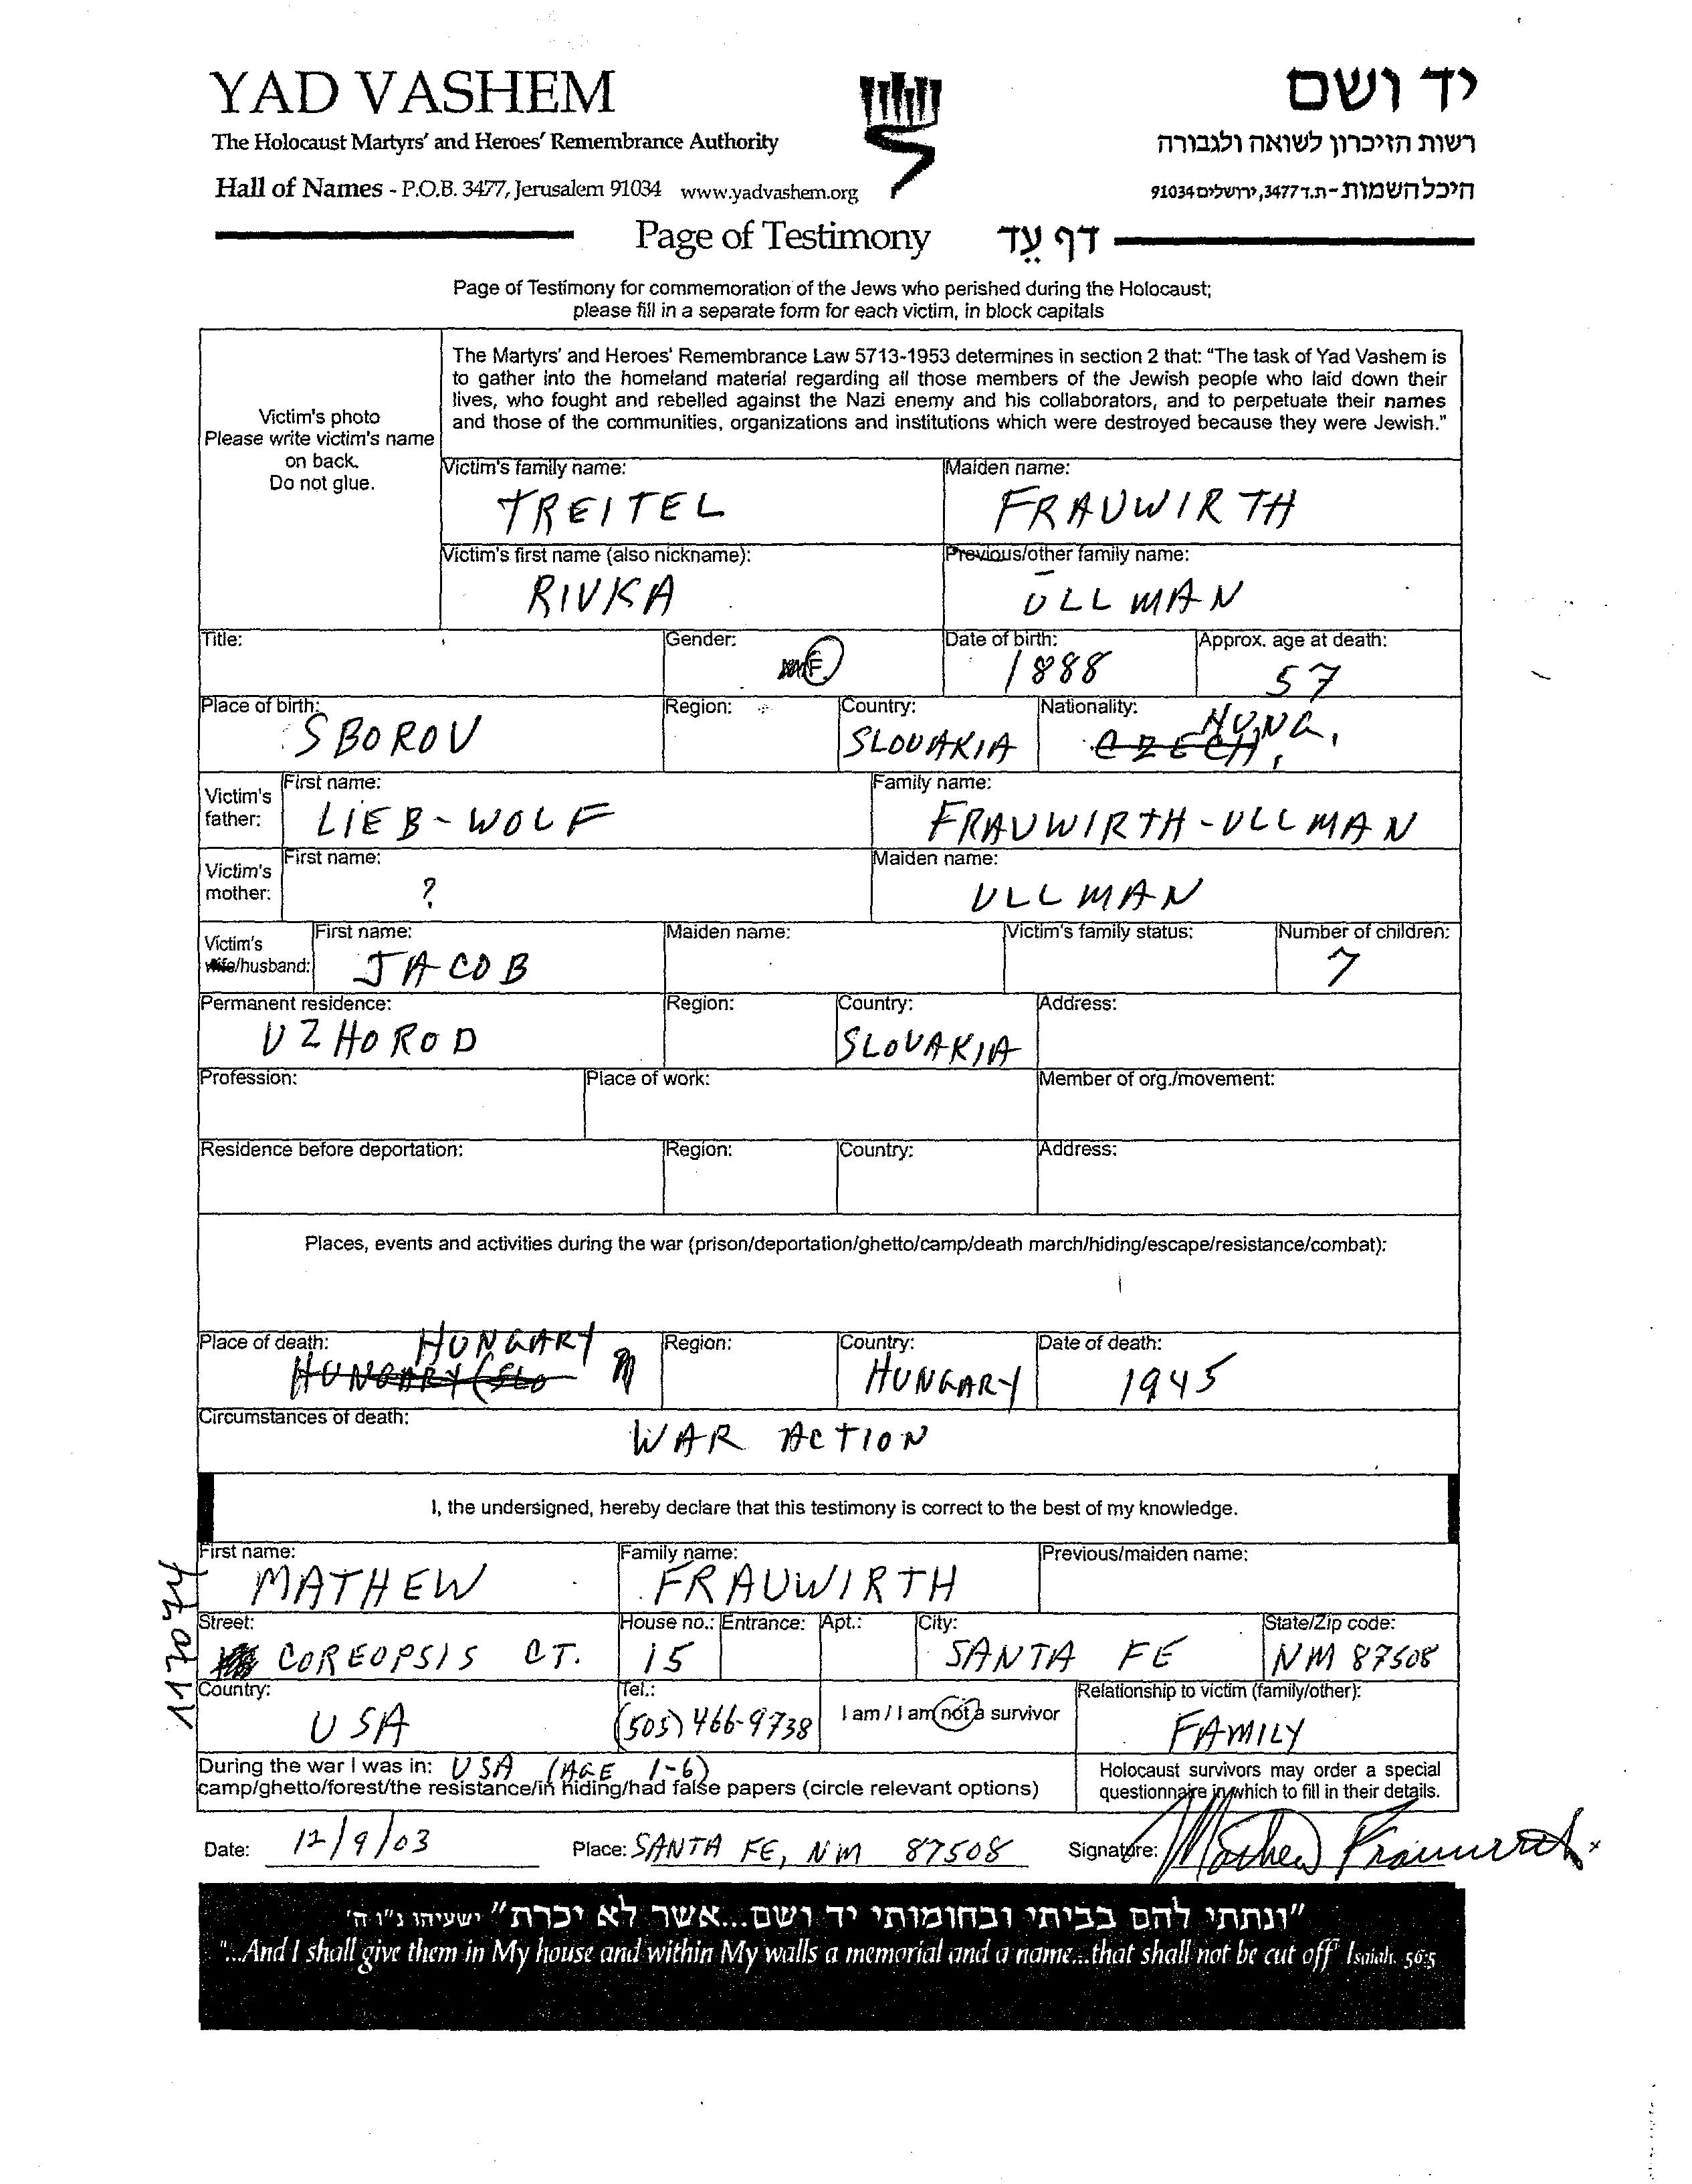 YAD VASHEM
יד ושם
The Holocaust Martyrs' and Heroes' Remembrance Authority
רשות הזיכרון לשואה ולגבורה
Hall of Names - P.O.B. 3477, Jerusalem 91034 www.yadvashem.org
היכל השמות - ת.ד 3477, ירושלים 91034
Page of Testimony דף עֵד
Page of Testimony for commemoration of the Jews who perished during the Holocaust;
please fill in a separate form for each victim, in block capitals
Victim's photo
Please write victim's name
on back.
Do not glue.
The Martyrs' and Heroes' Remembrance Law 5713-1953 determines in section 2 that: "The task of Yad Vashem is
to gather into the homeland material regarding all those members of the Jewish people who laid down their
lives, who fought and rebelled against the Nazi enemy and his collaborators, and to perpetuate their names
and those of the communities, organizations and institutions which were destroyed because they were Jewish."
Victim's family name: Maiden name:
TREITEL FRAUWIRTH
Victim's first name (also nickname): Previous/other family name:
RIVKA ULLMAN
Title: Gender: Date of birth: Approx. age at death:
F. 1888 57
Place of birth: Region: Country: Nationality:
SBOROV SLOVAKIA CZECH, HUNG.
Victim's father: First name: Family name:
LIEB-WOLF FRAUWIRTH-ULLMAN
Victim's mother: First name: Maiden name:
? ULLMAN
Victim's wife/husband: First name: Maiden name: Victim's family status: Number of children:
JACOB 7
Permanent residence: Region: Country: Address:
UZHOROD SLOVAKIA
Profession: Place of work: Member of org./movement:
Residence before deportation: Region: Country: Address:
Places, events and activities during the war (prison/deportation/ghetto/camp/death march/hiding/escape/resistance/combat):
Place of death: HUNGARY Region: Country: Date of death:
HUNGARY (SLO HUNGARY 1945
Circumstances of death:
WAR ACTION
I, the undersigned, hereby declare that this testimony is correct to the best of my knowledge.
First name: Family name: Previous/maiden name:
MATHEW FRAUWIRTH
Street: House no.: Entrance: Apt.: City: State/Zip code:
COREOPSIS CT. 15 SANTA FE NM 87508
Country: Tel.: I am / I am not a survivor Relationship to victim (family/other):
USA (505) 466-9738 FAMILY
During the war I was in: USA (AGE 1-6)
camp/ghetto/forest/the resistance/in hiding/had false papers (circle relevant options)
Holocaust survivors may order a special
questionnaire in which to fill in their details.
Date: 12/9/03 Place: SANTA FE, NM 87508 Signature: Mathew Frauwirth
"ונתתי להם בביתי ובחומותי יד ושם...אשר לא יכרת" ישעיהו נ"ו ה'
"...And I shall give them in My house and within My walls a memorial and a name...that shall not be cut off" Isaiah. 56:5